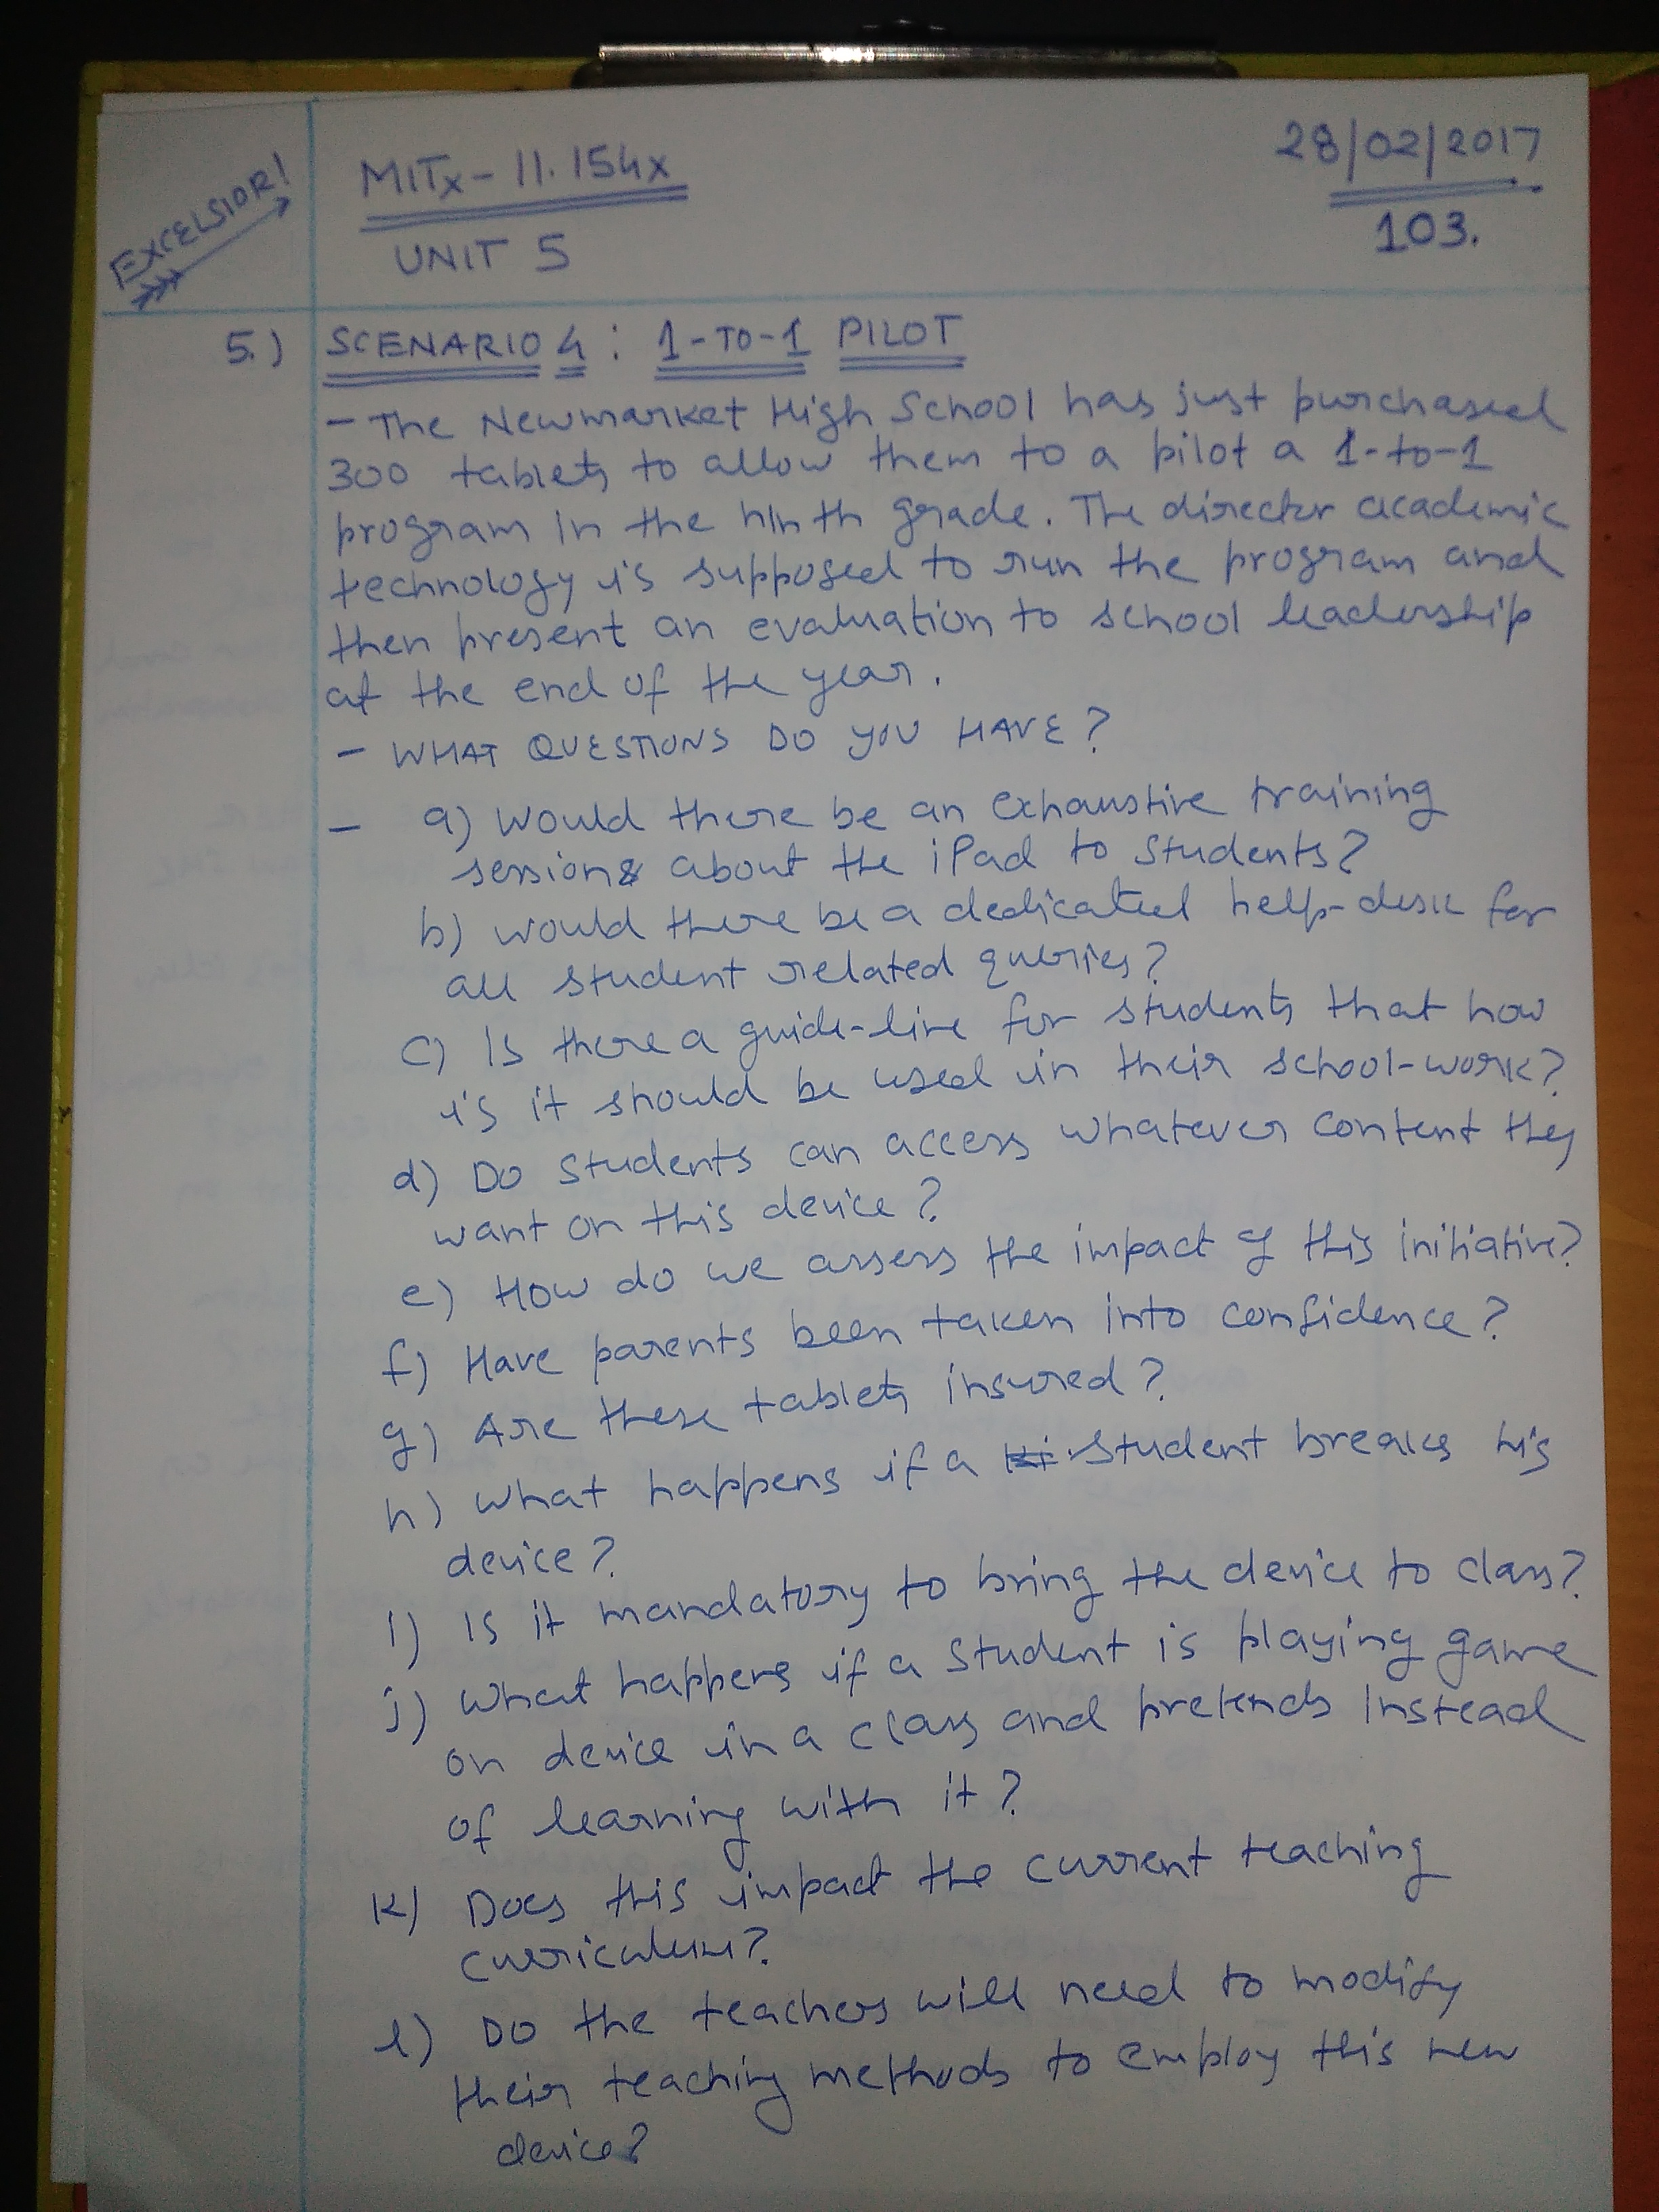 EXCELSIOR!
MITx - 11.154x
UNIT 5
28/02/2017
103.
5.) SCENARIO 4 : 1-TO-1 PILOT
- The Newmarket High School has just purchased
300 tablets to allow them to a pilot a 1-to-1
program in the ninth grade. The director academic
technology is supposed to run the program and
then present an evaluation to school leadership
at the end of the year.
- WHAT QUESTIONS DO YOU HAVE?
- a) Would there be an exhaustive training
sessions about the iPad to students?
b) would there be a dedicated help-desk for
all student related queries?
c) Is there a guide-line for students that how
is it should be used in their school-work?
d) Do students can access whatever content they
want on this device?
e) How do we assess the impact of this initiative?
f) Have parents been taken into confidence?
g) Are these tablets insured?
h) What happens if a student breaks his
device?
i) Is it mandatory to bring the device to class?
j) What happens if a student is playing game
on device in a class and pretends instead
of learning with it?
k) Does this impact the current teaching
curriculum?
l) Do the teachers will need to modify
their teaching methods to employ this new
device?